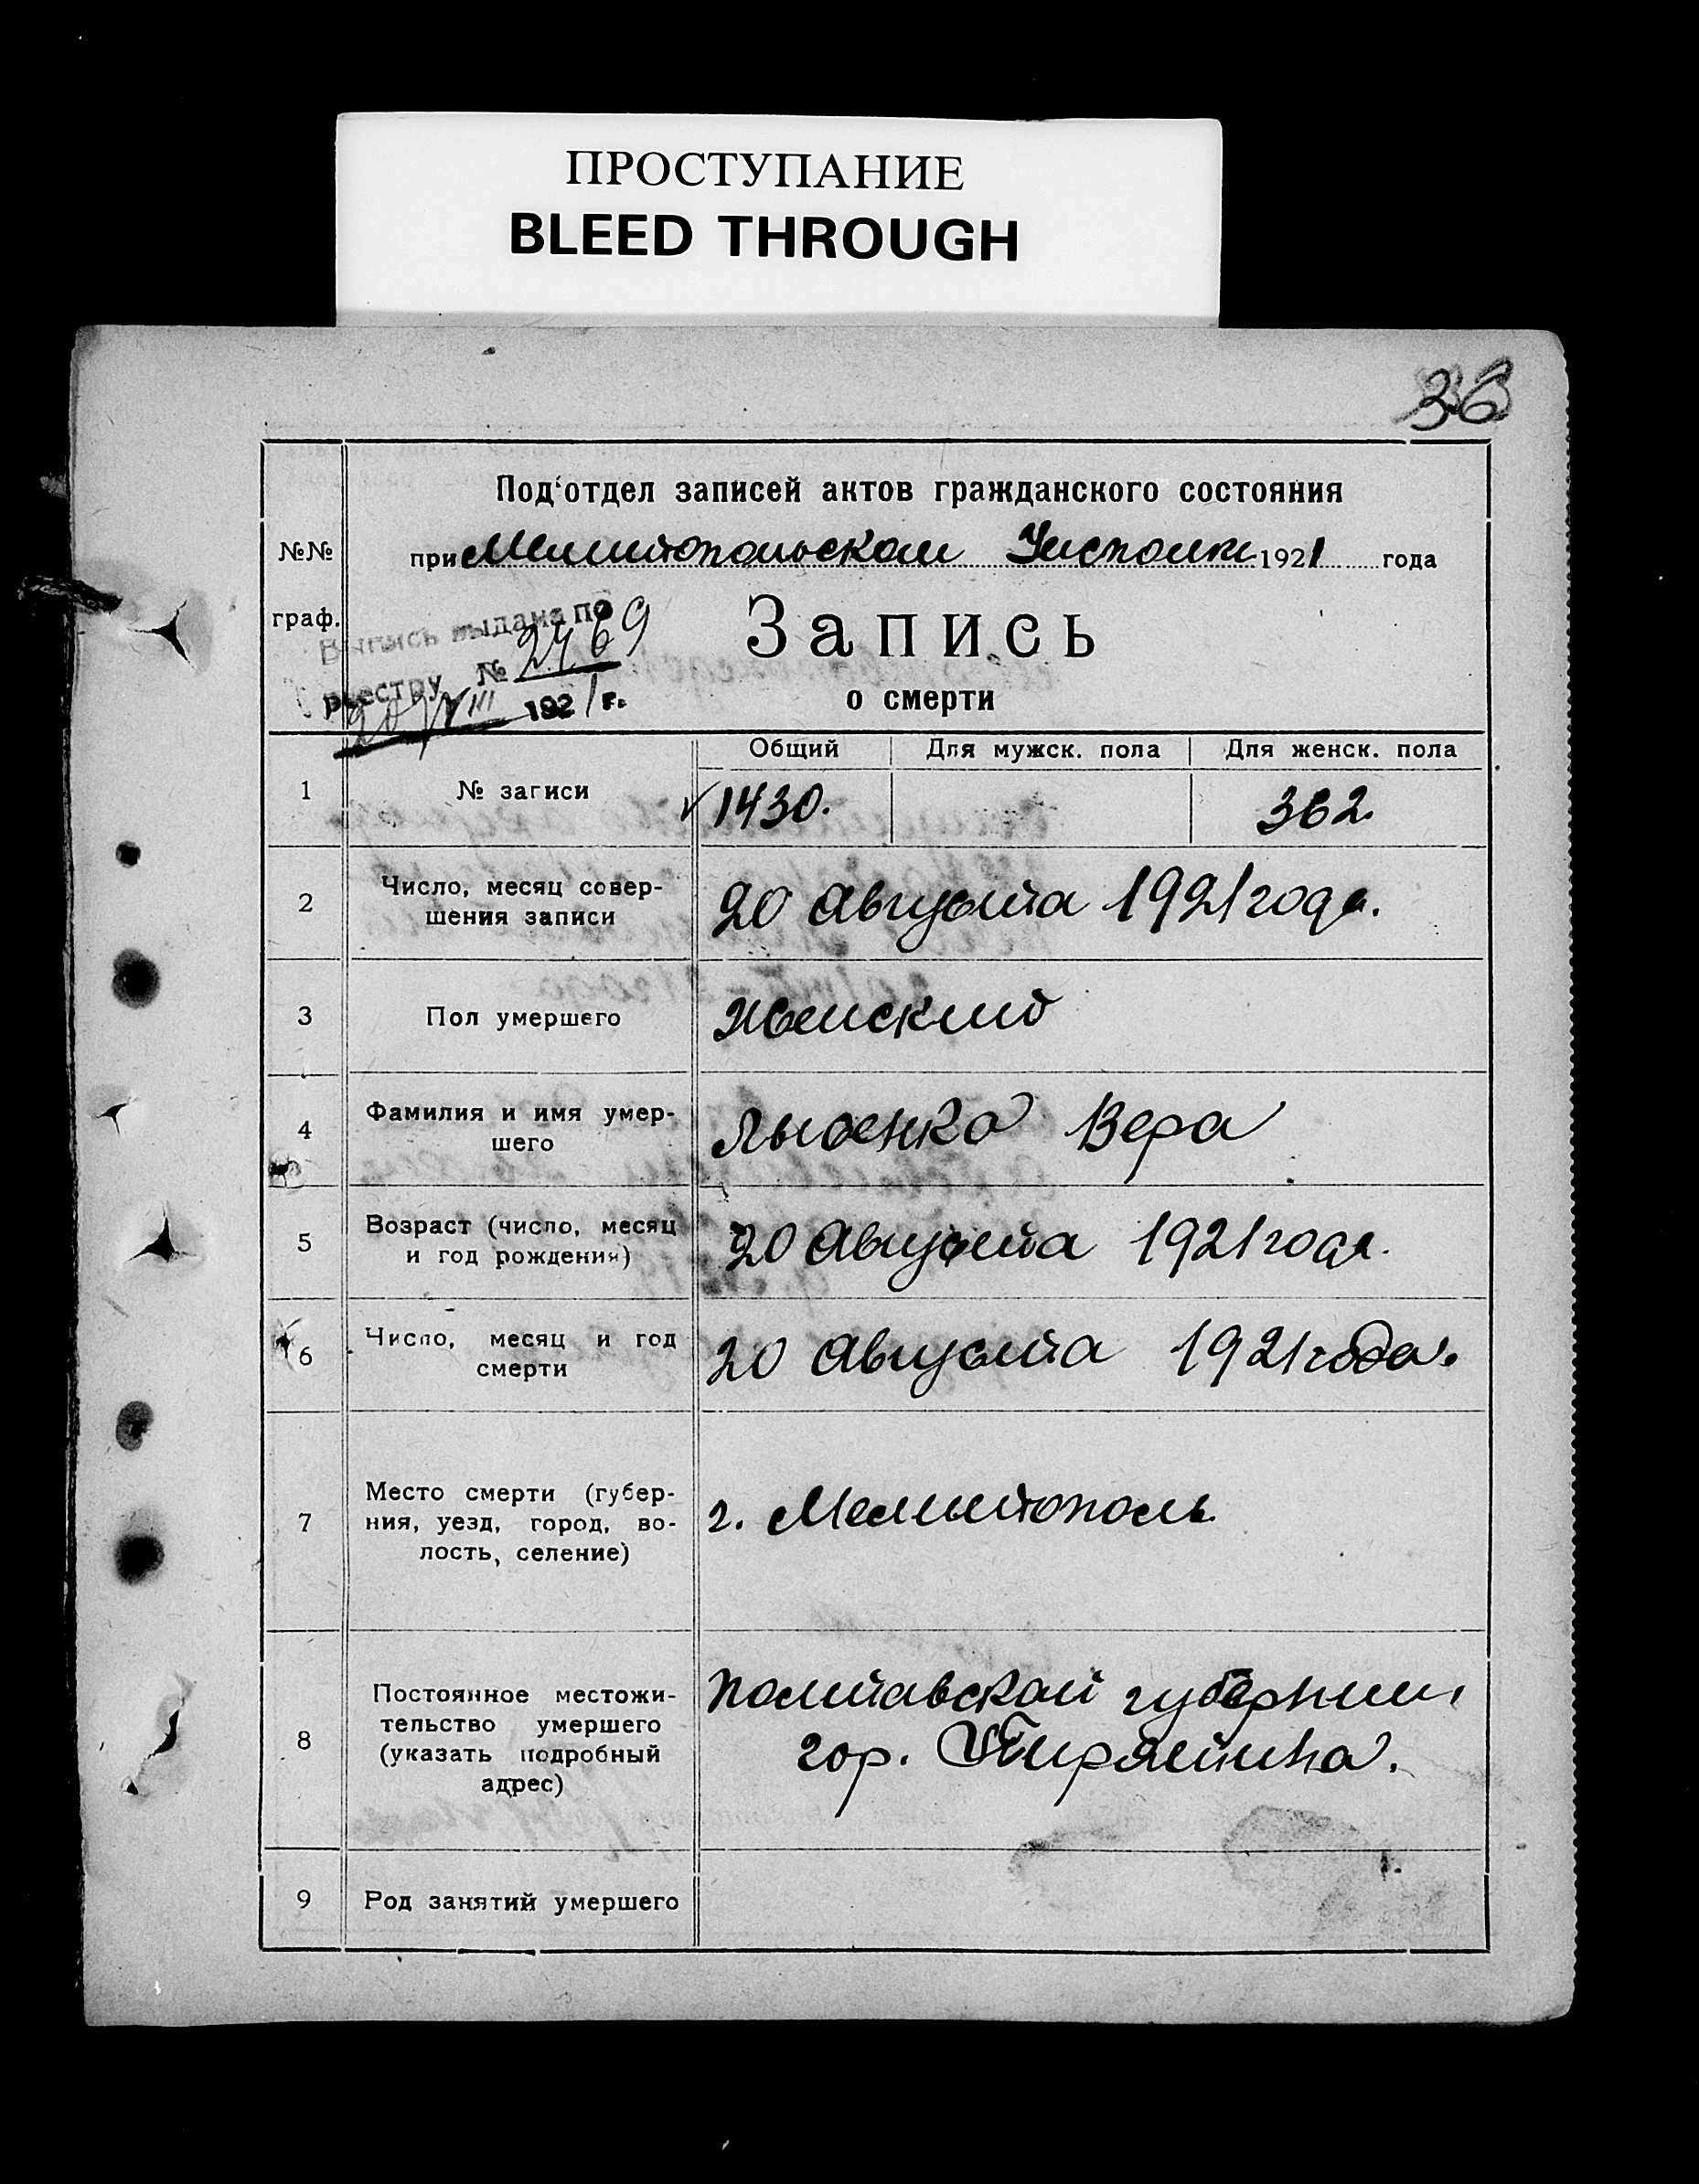 ПРОСТУПАНИЕ
BLEED THROUGH
36
Под'отдел записей актов гражданского состояния
№№ граф.
при Мелитопольском Уисполк. 1921 года
Выпись выдана по
реестру № 2469
20/VIII 1921 г.
Запись
о смерти
Общий Для мужск. пола Для женск. пола
1 № записи 1430. 362.
2 Число, месяц совер-
шения записи 20 Августа 1921 года.
3 Пол умершего Женский
4 Фамилия и имя умер-
шего Лысенко Вера
5 Возраст (число, месяц
и год рождения) 20 Августа 1921 года.
6 Число, месяц и год
смерти 20 Августа 1921 года.
7 Место смерти (губер-
ния, уезд, город, во-
лость, селение) г. Мелитополь
8 Постоянное местожи-
тельство умершего
(указать подробный
адрес) Полтавской губернии
гор. Пирятина.
9 Род занятий умершего